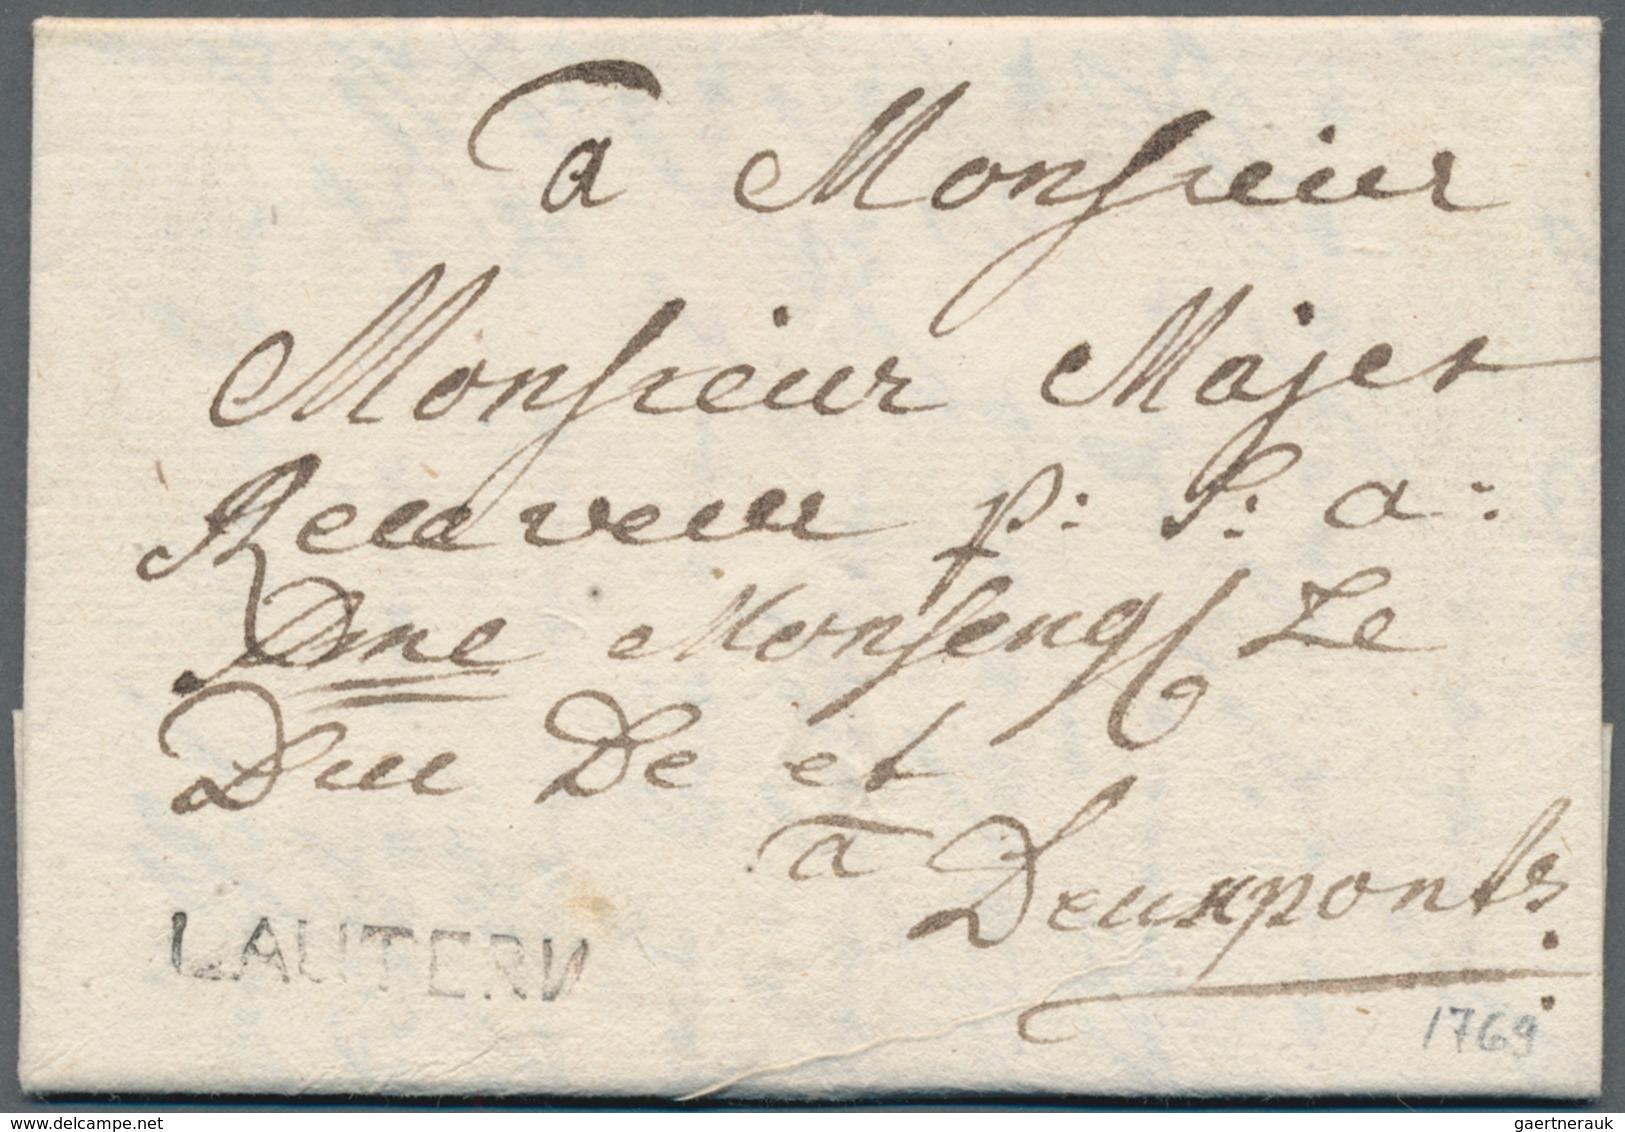 a Monsieur
Monsieur Majer
Receveur p: S: a:
Dme Monseng Le
Duc De et
a Deuxponts
LAUTERN
1769
delcampe.net
gaertnerauk